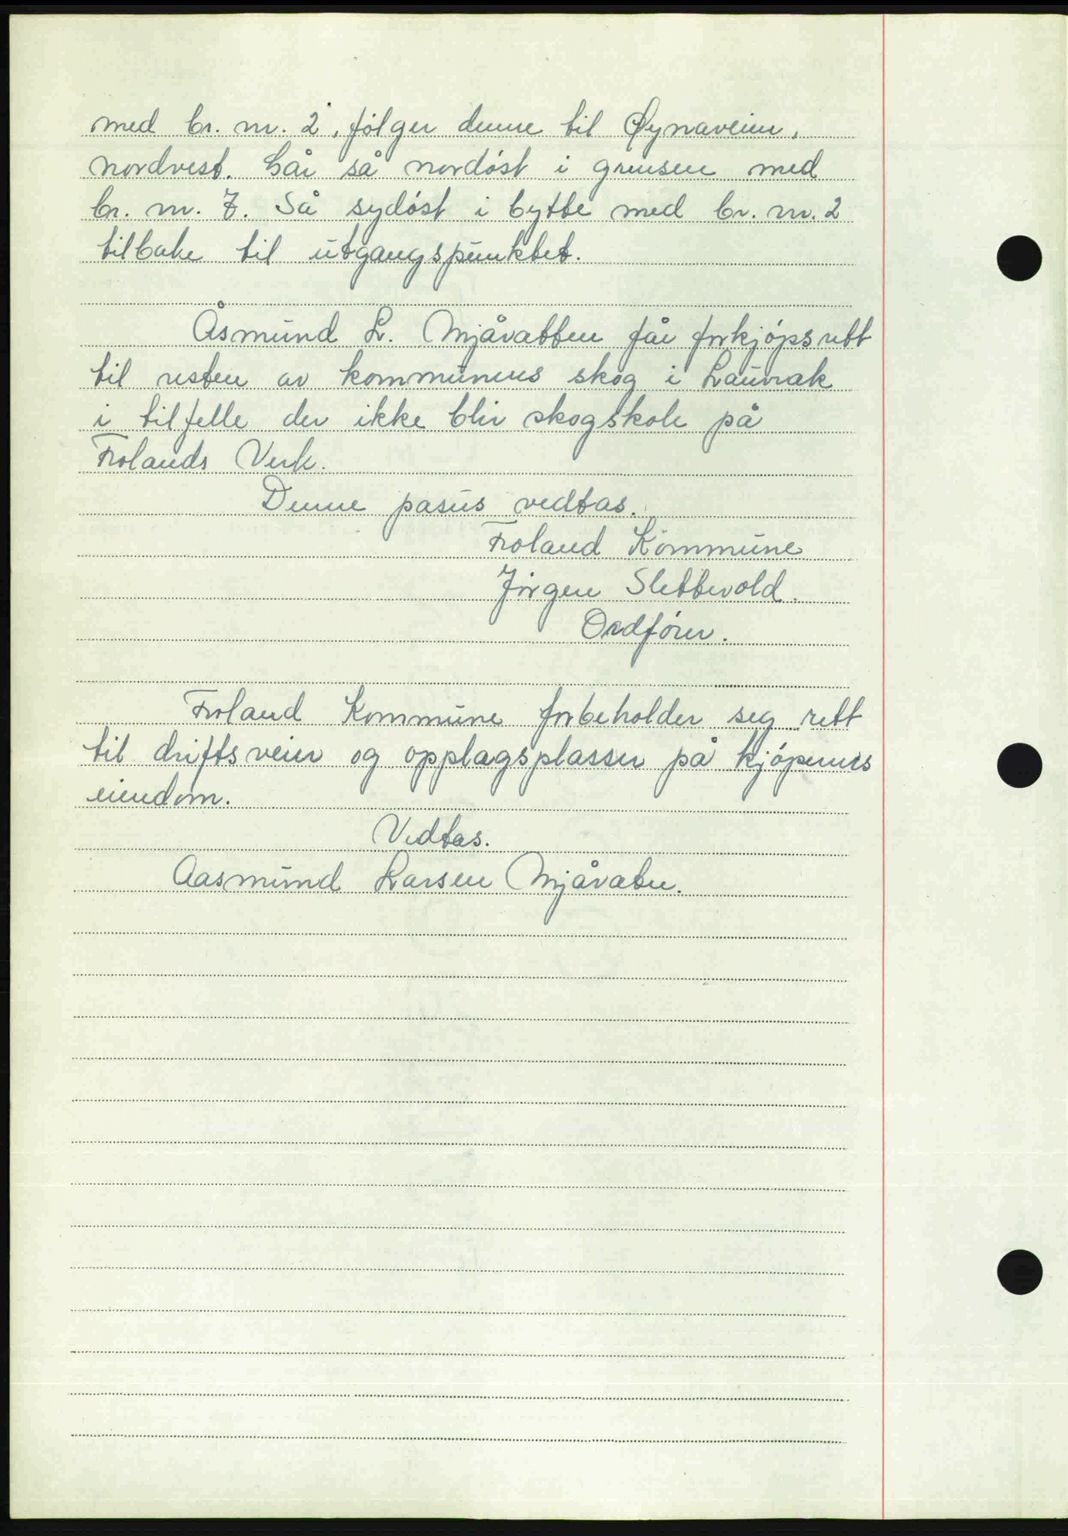 med br. nr. 2, følger denne til Øynaveien,
nordvest. Går så nordøst i grensen med
br. nr. 7. Så sydøst i bytte med br. nr. 2
tilbake til utgangspunktet.
Åsmund L. Mjåvatten får forkjøpsrett
til resten av kommunens skog i Lauvrak
i tilfelle der ikke blir skogskole på
Frolands Verk.
Denne pasus vedtas.
Froland Kommune
Jørgen Slettevold.
Ordfører.
Froland Kommune forbeholder seg rett
til driftsveier og opplagsplasser på kjøperens
eiendom.
Vedtas.
Aasmund Larsen Mjåvatn.